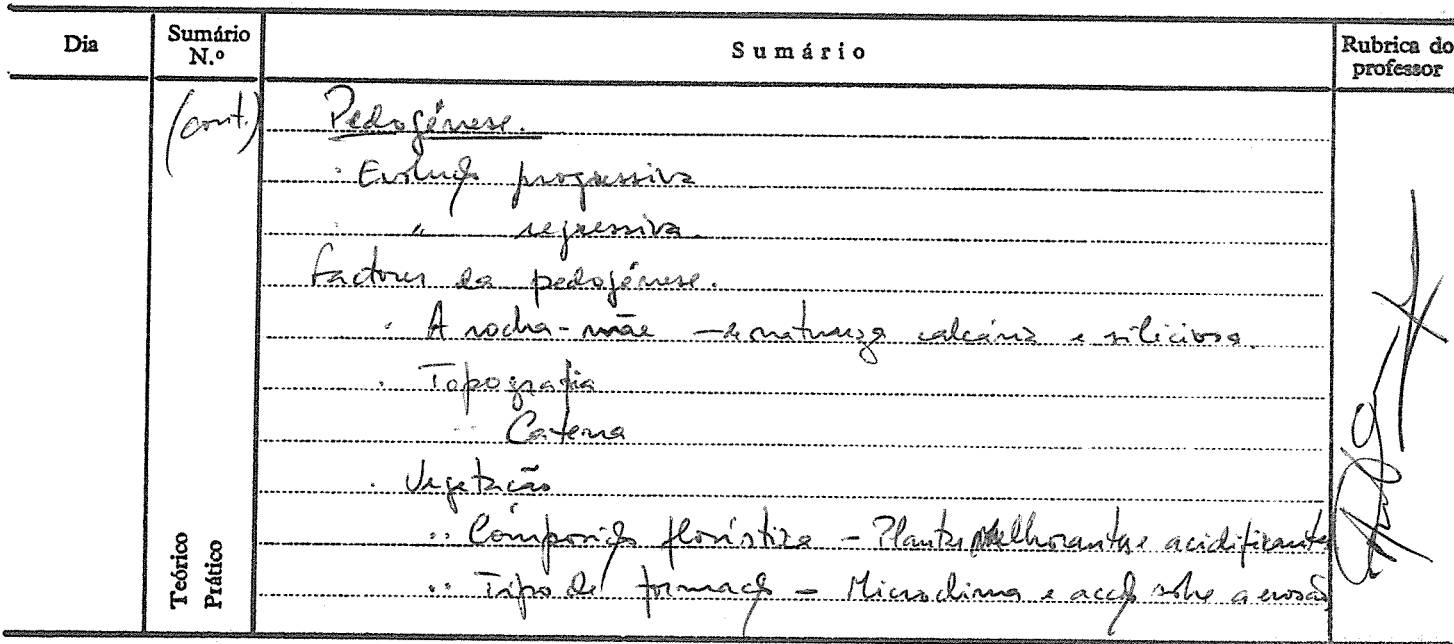 Dia Sumário N.º Sumário Rubrica do professor
(cont.) Pedogénese.
· Evolução progressiva
" regressiva.
Factores da pedogénese.
· A rocha-mãe – de natureza calcária e siliciosa.
· Topografia
·· Catena
· Vegetação
·· Composição florística – Plantas melhorantes e acidificantes
·· Tipo de formação – Microclima e acção sobre a erosão
Teórico
Prático